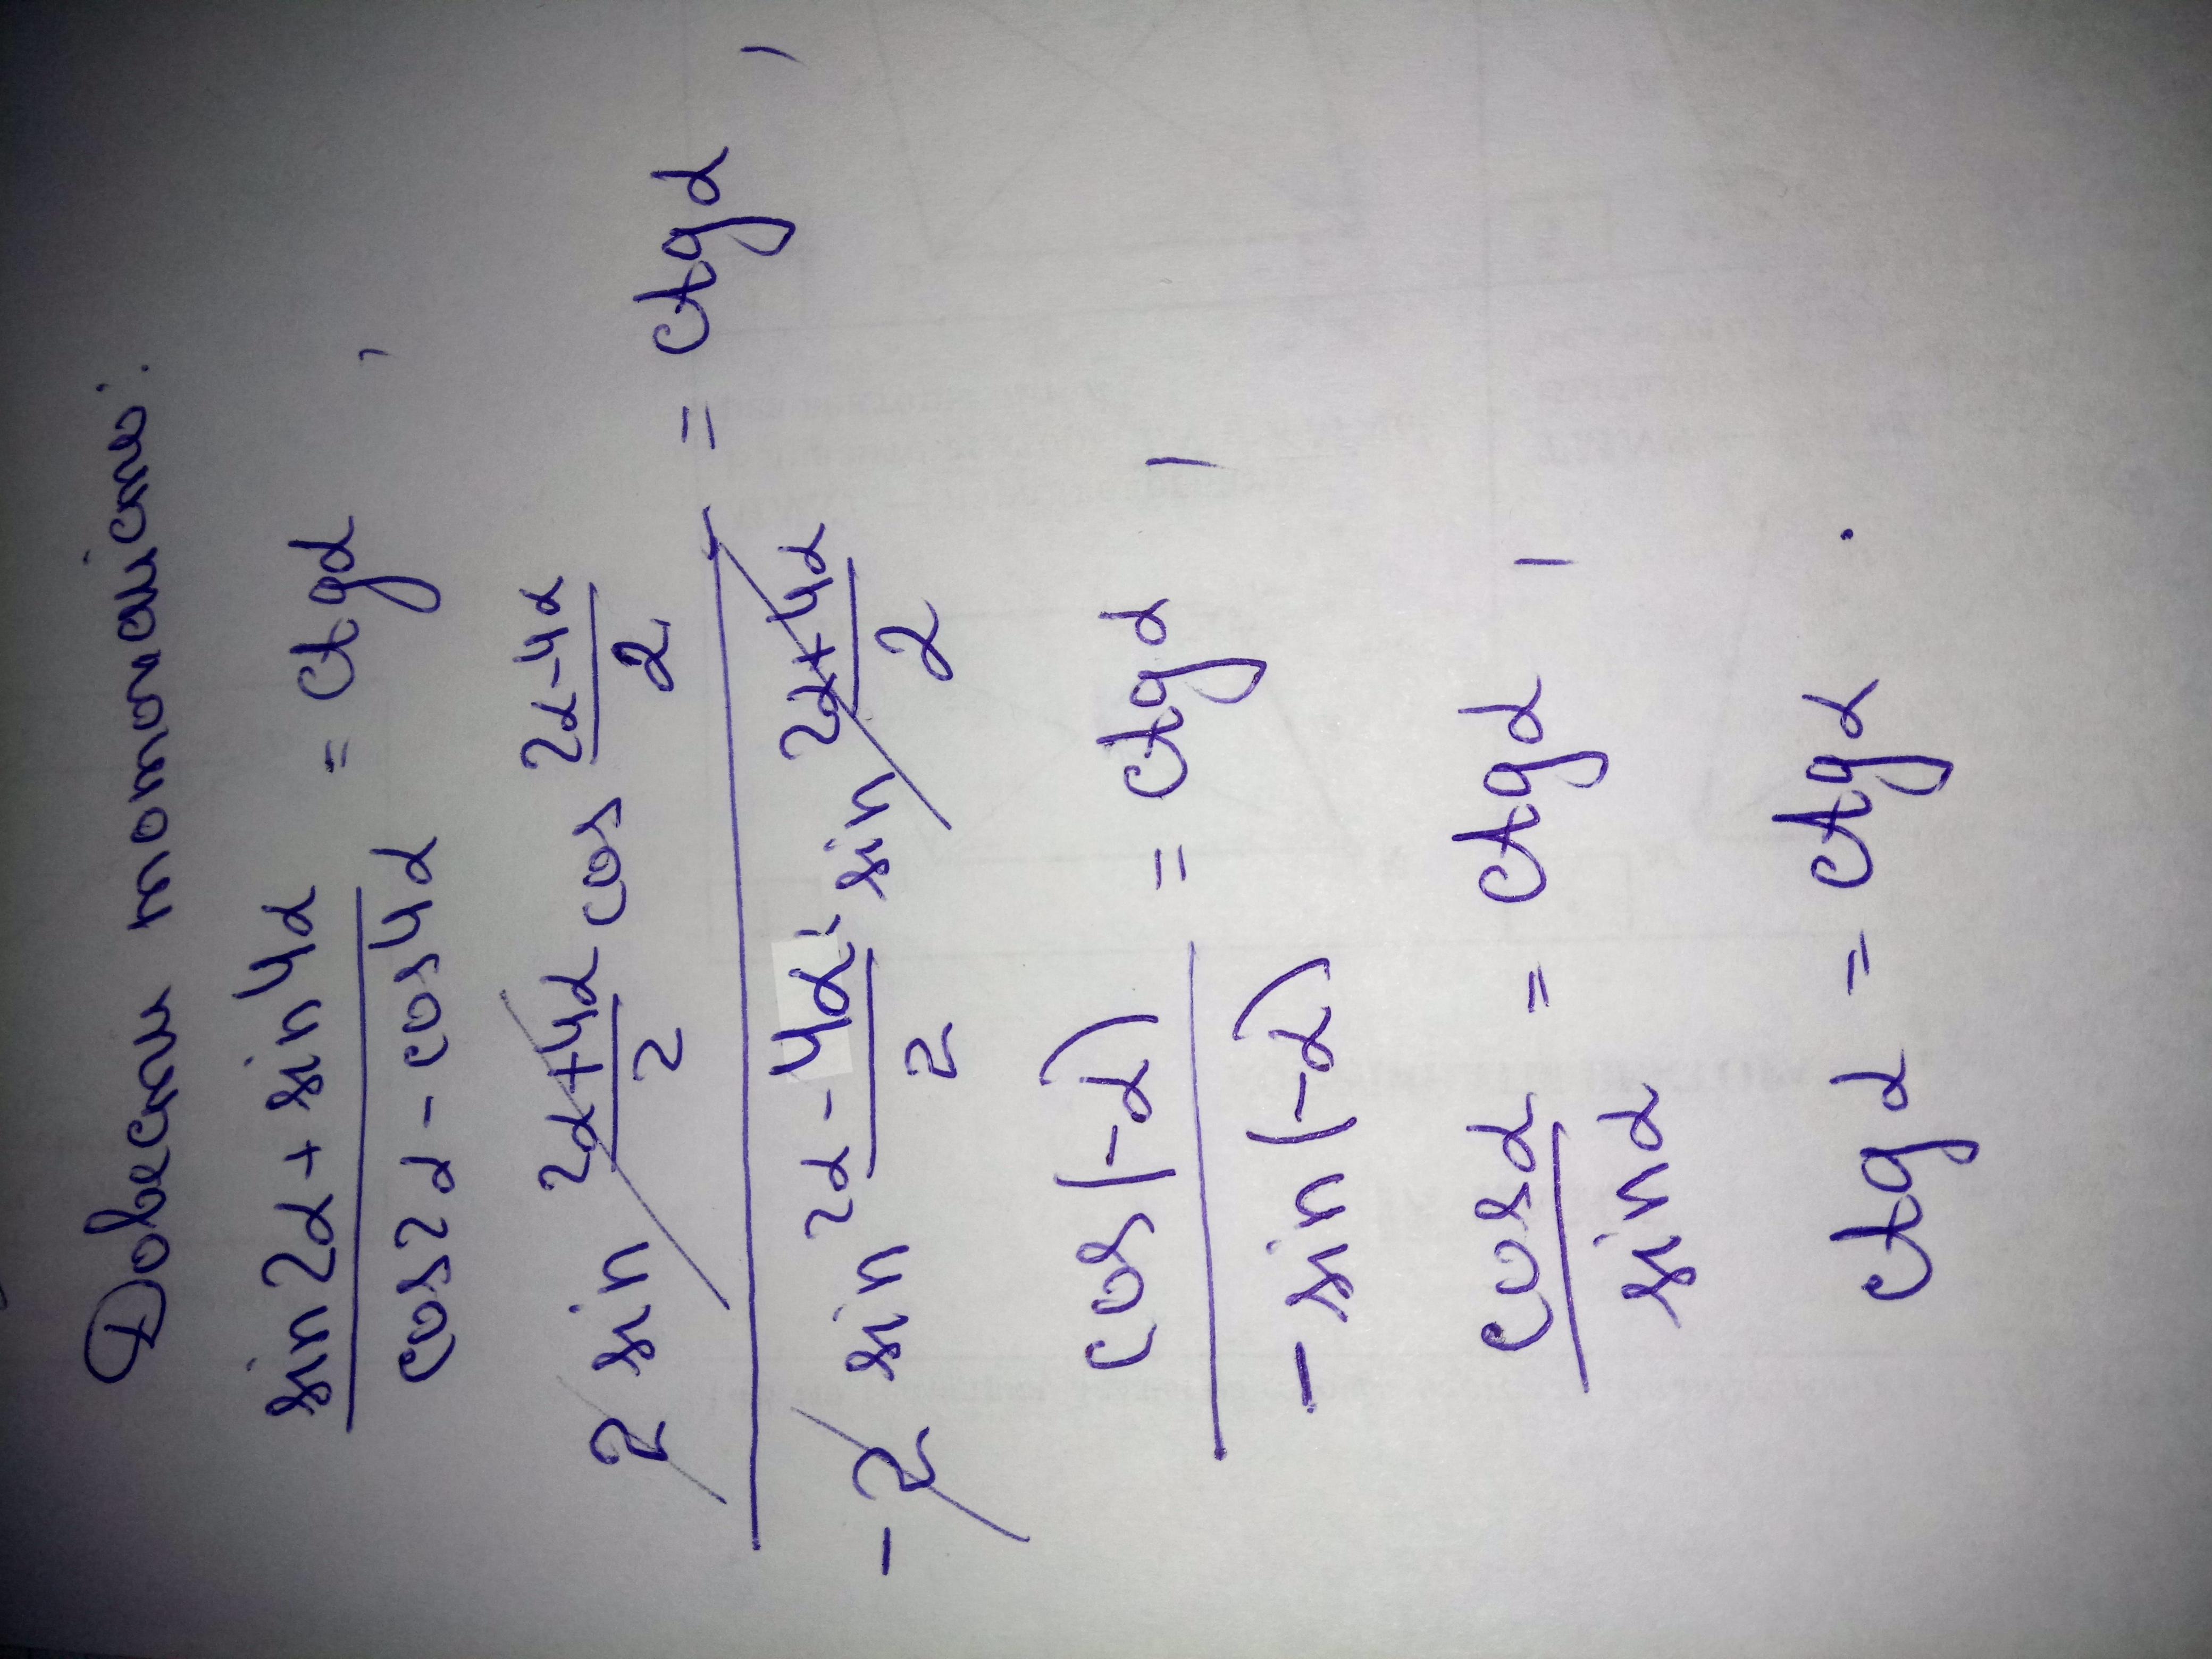 Довести тотожність:
sin2α + sin4α / cos2α - cos4α = ctgα,
2 sin 2α+4α/2 cos 2α-4α/2 / -2 sin 2α-4α/2 · sin 2α+4α/2 = ctgα,
cos(-α) / -sin(-α) = ctgα,
cosα / sinα = ctgα,
ctgα = ctgα.